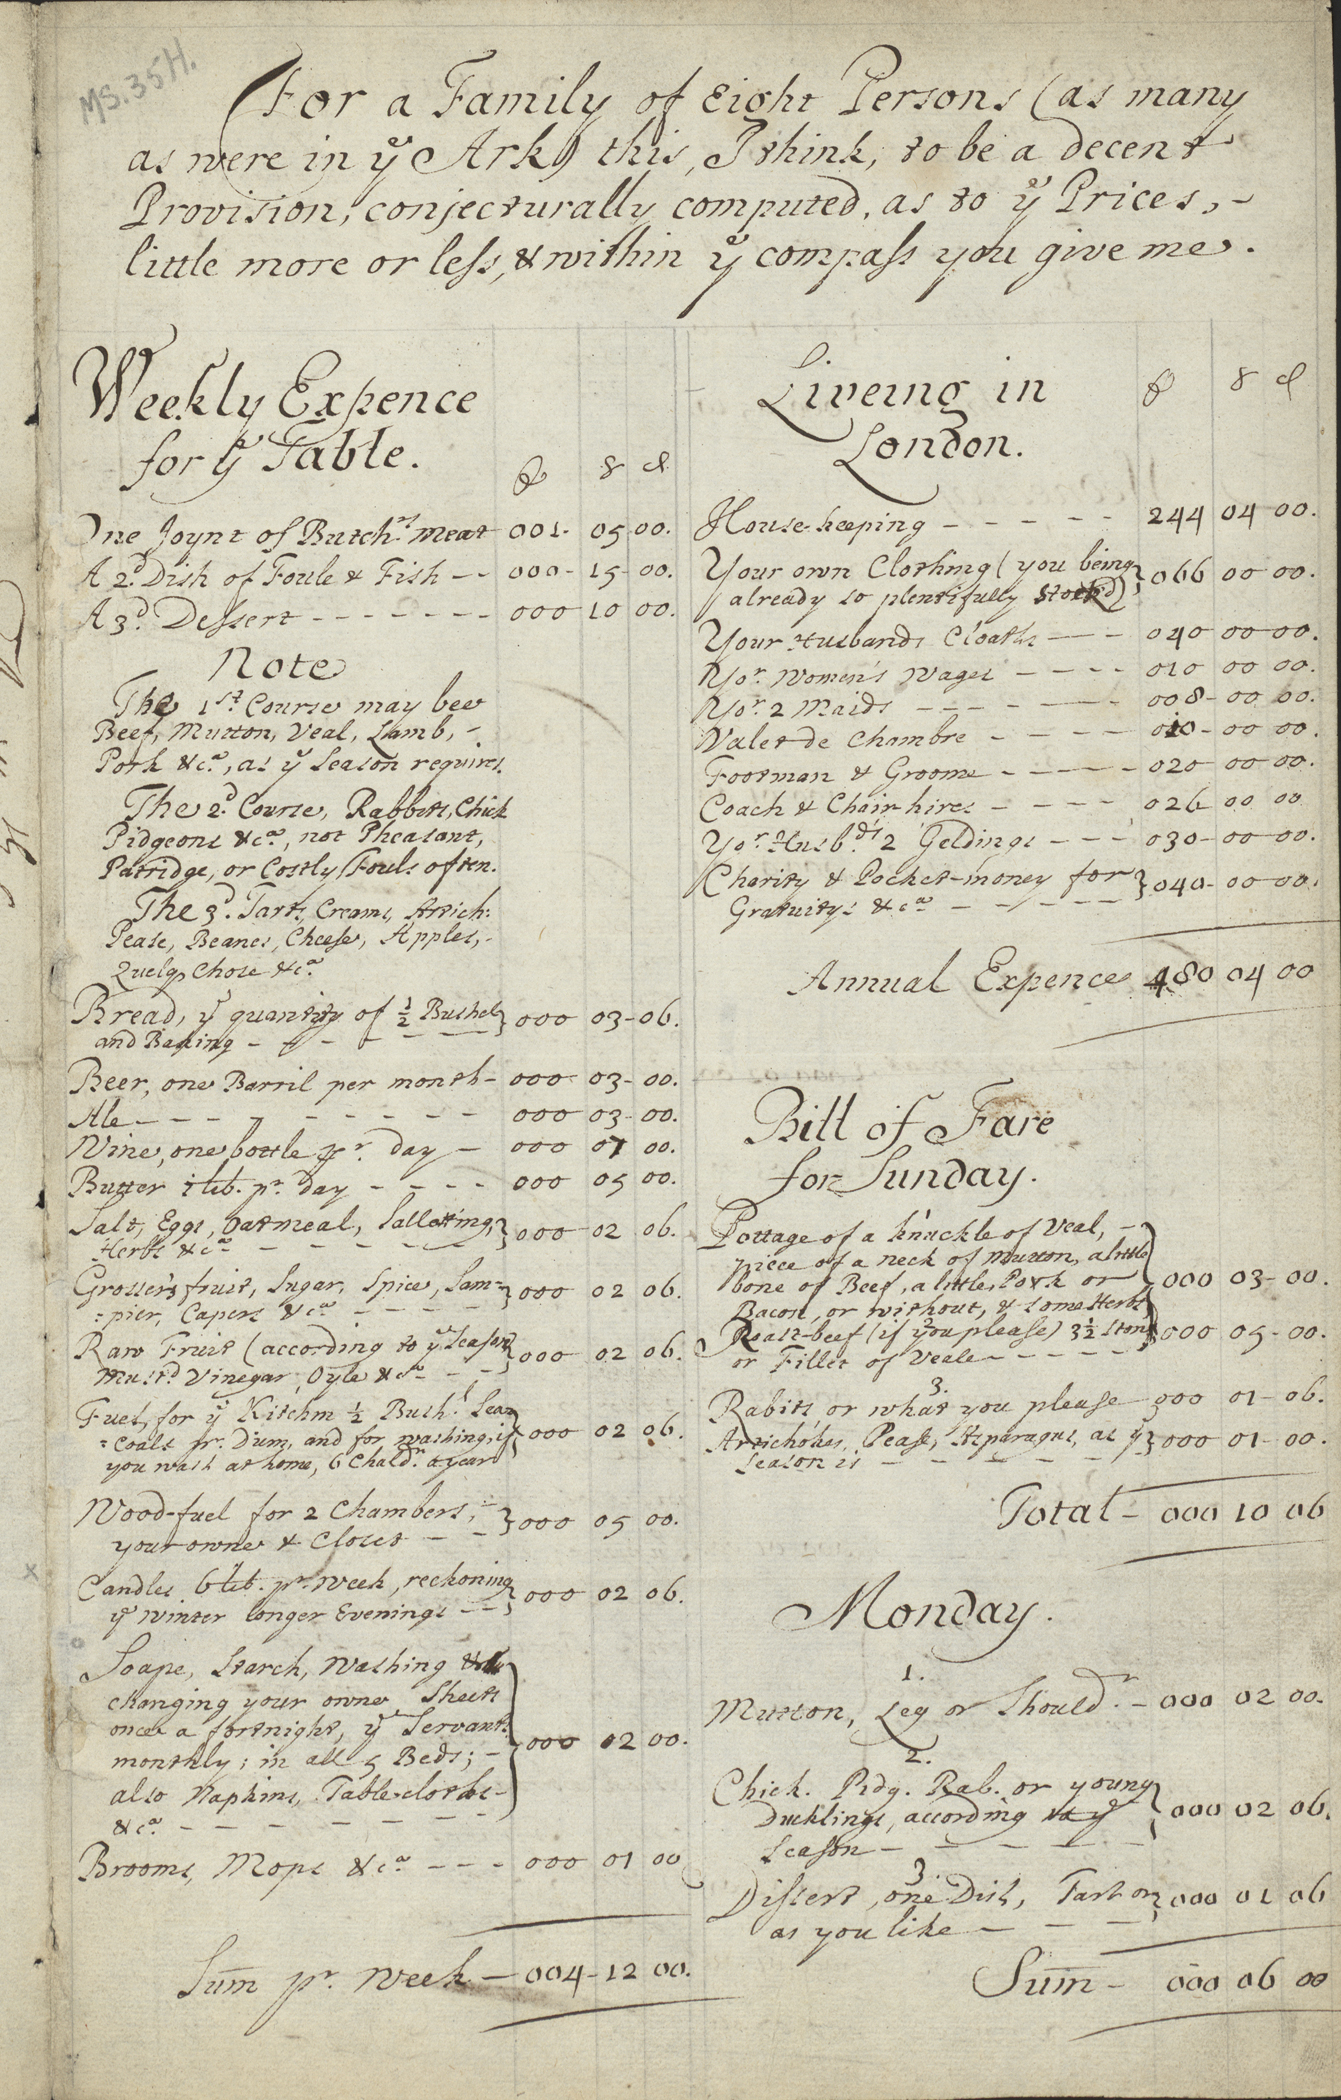 MS. 35H.
For a Family of Eight Persons (as many
as were in yͤ Ark) this, I think, to be a decent
Provision, conjecturally computed, as to yͤ Prices, -
little more or less, & within yͤ compass you give me.
Weekly Expence
for yͤ Table.
£ s d
One Joynt of Butchrs. meat 001 - 05 00.
A 2d. Dish of Foule & Fish - - 000 - 15 - 00.
A 3d. Dessert - - - - - - - 000 10 00.
Note
The 1st. Course may bee
Beef, Mutton, Veal, Lamb, -
Pork &ca, as yͤ Season requires.
The 2d. Course, Rabbits, Chick
Pidgeons &ca, not Pheasant,
Patridge, or Costly Fouls often.
The 3d. Tarts, Creams, Artich:
Pease, Beanes, Cheese, Apples, -
Quelq Chose &ca.
Bread, yͤ quantity of ½ Bushel
and Baking - - - - - - } 000 03 - 06.
Beer, one Barril per month - 000 03 - 00.
Ale - - - - - - - - - 000 03 - 00.
Wine, one bottle pr. day - 000 07 00.
Butter 1 lib. pr. day - - - - 000 05 00.
Salt, Eggs, Oatmeal, Salleting,
Herbs &ca - - - - - - } 000 - 02 06.
Grosser's fruit, Sugar, Spice, Sam=
=pier, Capers &ca - - - - - } 000 02 06.
Raw Fruit (according to yͤ Season
Mustd. Vinegar, Oyle &ca - - - } 000 02 06.
Fuel, for yͤ Kitchin ½ Bushl. Sea=
=coals pr. Dium, and for washing, if
you wash at home, 6 Chaldr. a year } 000 02 06.
Wood-fuel for 2 Chambers, -
your owne & Closet - - } 000 05 00.
Candles 6 lib. pr. Week, reckoning
yͤ winter longer Evenings - - } 000 02 06.
Soape, Starch, Washing &
changing your owne Sheets
once a fortnight, yͤ Servants
monthly; in all 5 Beds; -
also Napkins, Table-cloths -
&ca. - - - - - - - } 000 02 00.
Brooms, Mops &ca - - - 000 01 00
Sum̄ pr. Week - 004 - 12 00.
Liveing in
London.
£ s d
House-keeping - - - - - 244 04 00.
Your own Clothing (you being
already so plentifully stock'd) } 066 00 00.
Your Husbands Cloaths - - - 040 00 00.
Yor. Women's Wages - - - - 010 00 00.
Yor. 2 Maids - - - - - - 008 - 00 00.
Valet de Chambre - - - - 010 - 00 00.
Footman & Groome - - - - - 020 00 00.
Coach & Chair-hires - - - - 026 00 00
Yor. Husbds. 2 Geldings - - - 030 - 00 00.
Charity & Pocket-money for
Gratuitys &ca - - - - - } 040 - 00 00.
Annual Expence 480 04 00
Bill of Fare
for Sunday.
Pottage of a knuckle of Veal, -
piece of a neck of mutton, a little
bone of Beef, a little Pork or
Bacon, or without, & some Herbs } 000 03 - 00.
Roast-beef (if you please) 3½ Stone
or Fillet of Veale - - - - - } 000 05 - 00.
3.
Rabits or what you please - 000 01 - 06.
Artichokes, Pease, Asparagus, as yͤ
Season is - - - - - - } 000 01 - 00.
Total - 000 10 06
Monday.
1.
Mutton, Leg or Shouldr. - 000 02 00.
2.
Chick. Pidg. Rab. or young
Ducklings, according to yͤ
Season - - - - - - } 000 02 06.
3.
Dissert, one Dish, Tart or
as you like - - - - } 000 01 06
Sum̄ - 000 06 00